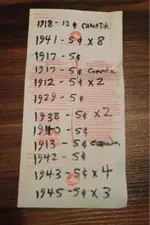 1918 - 10 ¢ CANADA
1941 - 5¢ x 8
1917 - 5¢
1917 - 5¢ Canada
1912 - 5¢ x 2
1929 - 5¢
1938 - 5¢ x 2
1940 - 5¢
1913 - 5¢ Canada
1942 - 5¢
1943 - 5¢ x 4
1945 - 5¢ x 3